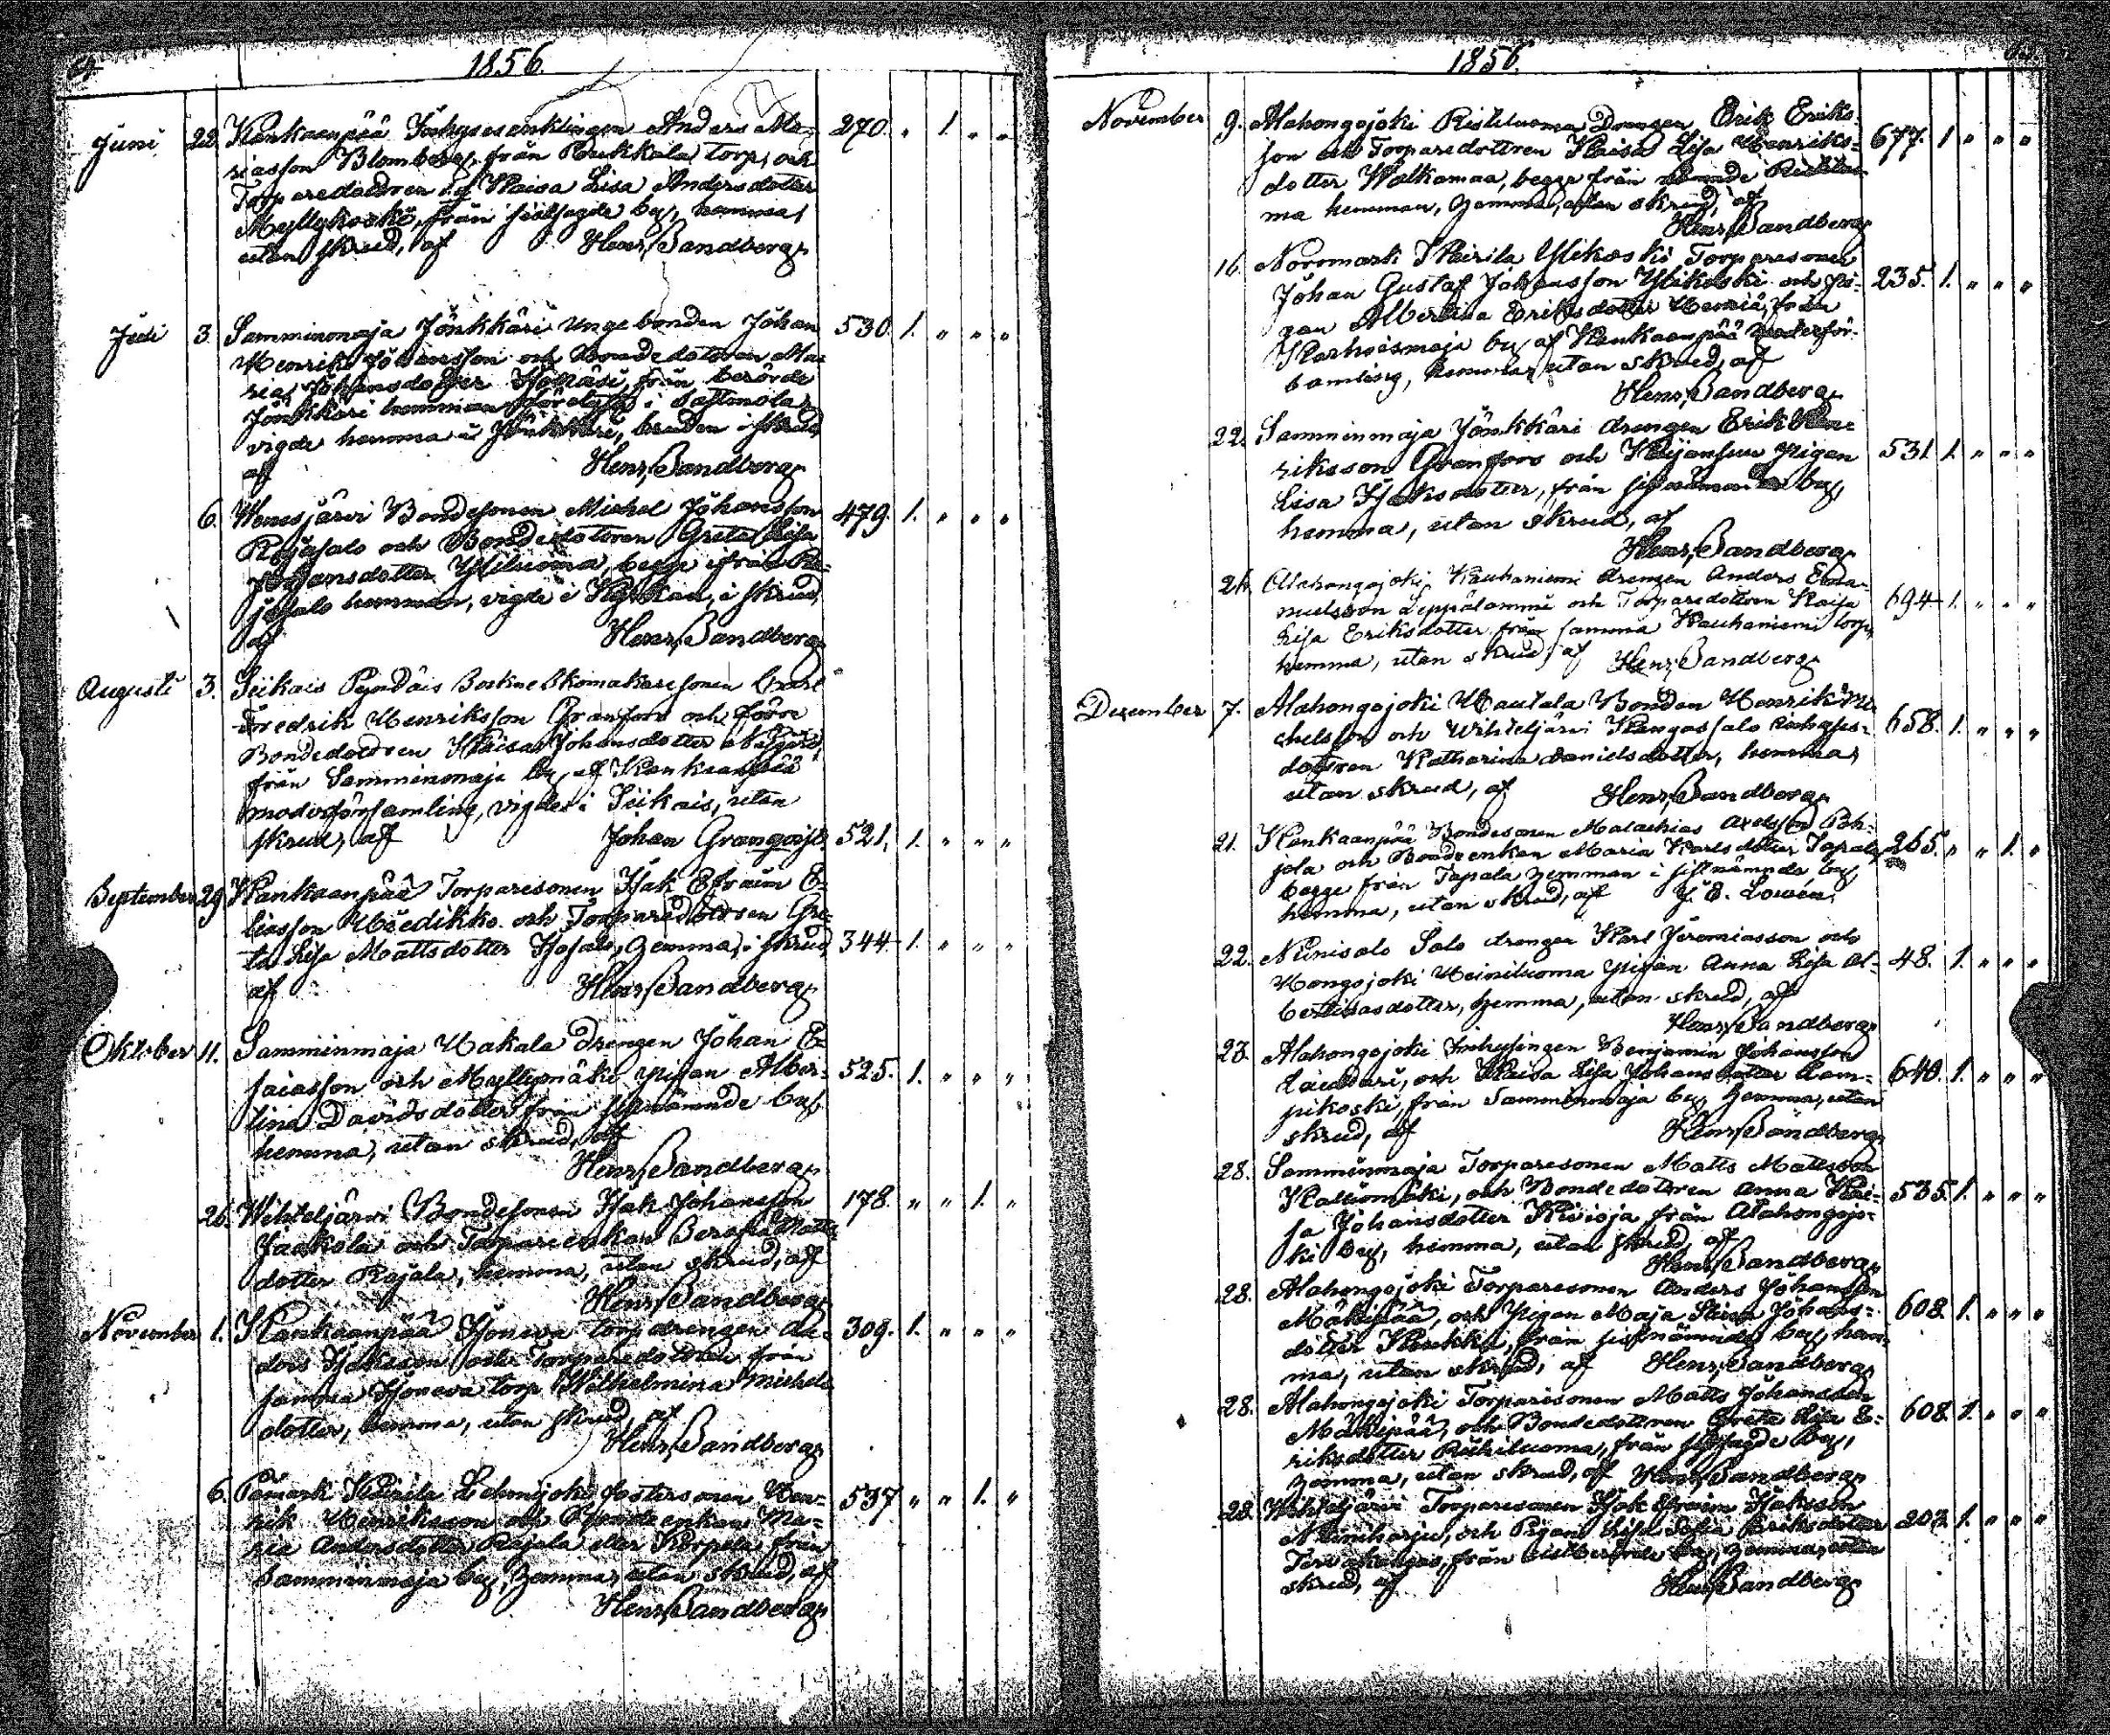 64.
1856.
Juni 22. Kankaanpää Inhysesenklingen Anders Ma- 270. " 1. " "
riasson Blomberg, från Pukkala torp, och
Torparedottren Kaisa Lisa Andersdotter
Myllykoski, från sistsagde by, hemma,
utan skrud, af Henr. Sandberg.
Juli 3. Samminmaja Jönkkäri unge bonden Johan 530. 1. " " "
Henrik Johansson och Bondedottren Ma-
ria Johansdotter från berörde
Jönkkäri hemman, i
vigde hemma i Jönkkäri, bruden i skrud
af Henr. Sandberg.
6. Wenesjärvi Bondesonen Michel Johansson 479. 1. " " "
Rajasalo och Bondedottren Greta Lisa
Johansdotter Yliluoma, begge ifrån Ra-
jasalo hemman, vigde i Kyrkan, i skrud,
af Henr. Sandberg.
Augusti 3. Siikais Pyndäis Skomakaresonen Carl
Fredrik Henriksson Granfors och förre
Bondedottren Kaisa Johansdotter
från Samminmaja by, af Kankaanpää
moderförsamling, vigde i Siikais, utan
skrud, af Johan Granqvist. 521. 1. " " "
September 29. Kankaanpää Torparesonen Isak Efraim E-
liasson och Torparedottren Gre-
ta Lisa Mattsdotter Isosalo, hemma, i skrud, 344. 1. " " "
af Henr. Sandberg.
Oktober 11. Samminmaja Hakala Drengen Johan E-
saiasson och Myllymäki pigan Alber- 525. 1. " " "
tina Davidsdotter från sistnämnde by,
hemma, utan skrud, af
Henr. Sandberg.
26. Wihteljärvi Bondesonen Isak Johansson 178. " " 1. "
Jaakola och Torpareenkan Serafia Matts-
dotter Rajala, hemma, utan skrud, af
Henr. Sandberg.
November 1. Kankaanpää Isoneva torp drengen An- 309. 1. " " "
ders Isaksson och Torparedottren från
samma Isoneva torp Wilhelmina Michels-
dotter, hemma, utan skrud, af
Henr. Sandberg.
6. Påmark Kairila Lehmijoki fostersonen Hen- 537 " " 1. "
rik Henriksson och enkan Ma-
ria Andersdotter Rajala eller Korpela från
Samminmaja by, hemma, utan skrud, af
Henr. Sandberg.
1856.
November 9. Alahongojoki Ristiluoma Drengen Erik Eriks-
son och Torparedottren Kaisa Lisa Henriks- 677. 1 " " "
dotter Walkamaa, begge från Ristiluo-
ma hemman, hemma, utan skrud, af
Henr. Sandberg.
16. Norrmark Kairila Ylikoski Torparesonen
Johan Gustaf Johansson Ylikoski och pi- 235. 1. " " "
gan Albertina Eriksdotter från
Karhoismaja by af Kankaanpää moderför-
samling, hemma, utan skrud, af
Henr. Sandberg.
22. Samminmaja Jönkkäri drengen Erik Hen-
riksson Granfors och pigan 531. 1. " " "
Lisa Isaksdotter, från sistnämnde by,
hemma, utan skrud, af
Henr. Sandberg.
26. Alahongojoki Kauhaniemi drengen Anders Ema-
nuelsson Leppälammi och Torparedottren Kaisa 694 1. " " "
Lisa Eriksdotter från samma Kauhaniemi torp,
hemma, utan skrud, af Henr. Sandberg.
December 7. Alahongojoki Hautala Bonden Henrik Mi-
chelsson och Wihteljärvi Kangassalo Inhyses- 658. 1. " " "
dottren Katharina Danielsdotter, hemma,
utan skrud, af Henr. Sandberg.
21. Kankaanpää Bondesonen Malachias Axelsson Poh-
jola och Bondeenkan Maria Karlsdotter Tapala, 265. " " 1. "
begge från Tapala hemman i sistnämnde by,
hemma, utan skrud, af J. E. Lowen.
22. Niinisalo Salo drengen Karl Jeremiasson och
Hongojoki Heiniluoma pigan Anna Lisa Al- 48. 1. " " "
bertinasdotter, hemma, utan skrud, af
Henr. Sandberg.
23. Alahongojoki Inhysingen Benjamin Johansson
och Kaisa Lisa Johansdotter Lam- 640. 1. " " "
pikoski, från Samminmaja by, hemma, utan
skrud, af Henr. Sandberg.
28. Samminmaja Torparesonen Matts Mattsson
Kalliomäki, och Bondedottren Anna Kai- 535. 1. " " "
sa Johansdotter Kivioja från Alahongojo-
ki by, hemma, utan skrud, af
Henr. Sandberg.
28. Alahongojoki Torparesonen Anders Johansson
Mäkipää, och Pigan Maja Stina Johans- 608. 1. " " "
dotter från sistnämnde by, hem-
ma, utan skrud, af Henr. Sandberg.
28. Alahongojoki Torparesonen Matts Johansson
Mäkipää, och Bondedottren Greta Lisa E- 608. 1. " " "
riksdotter Riihiluoma, från sistsagde by,
hemma, utan skrud, af Henr. Sandberg.
28. Wihteljärvi Torparesonen Isak Efraim Isaksson
Niiniharju, och Pigan Lisa Sofia Eriksdotter 203. 1. " " "
från sistberörde by, hemma, utan
skrud, af Henr. Sandberg.